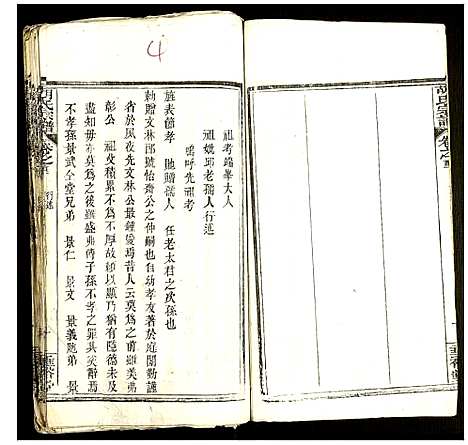 胡氏宗譜
卷之
4
祖考端峯大人
祖妣邱老孺人行述
嗚呼先祖考
旌表節孝 馳贈孺人 任老太君之次孫也
勅贈文林郎號怡齋公之仲嗣也自幼孝友著於庭闈勤謹
省於夙夜先文林公最鍾愛焉昔人云莫為之前雖美弗
彰公 祖父積累不為不厚故歸以顯乃猶有隱德未
盡知毋亦莫為之後雖盛弗傳子孫不孝之罪具奚辭焉
不孝孫景武仝堂兄弟 景仁 景文 景義 胞弟 景
胡氏宗譜
卷之
行述